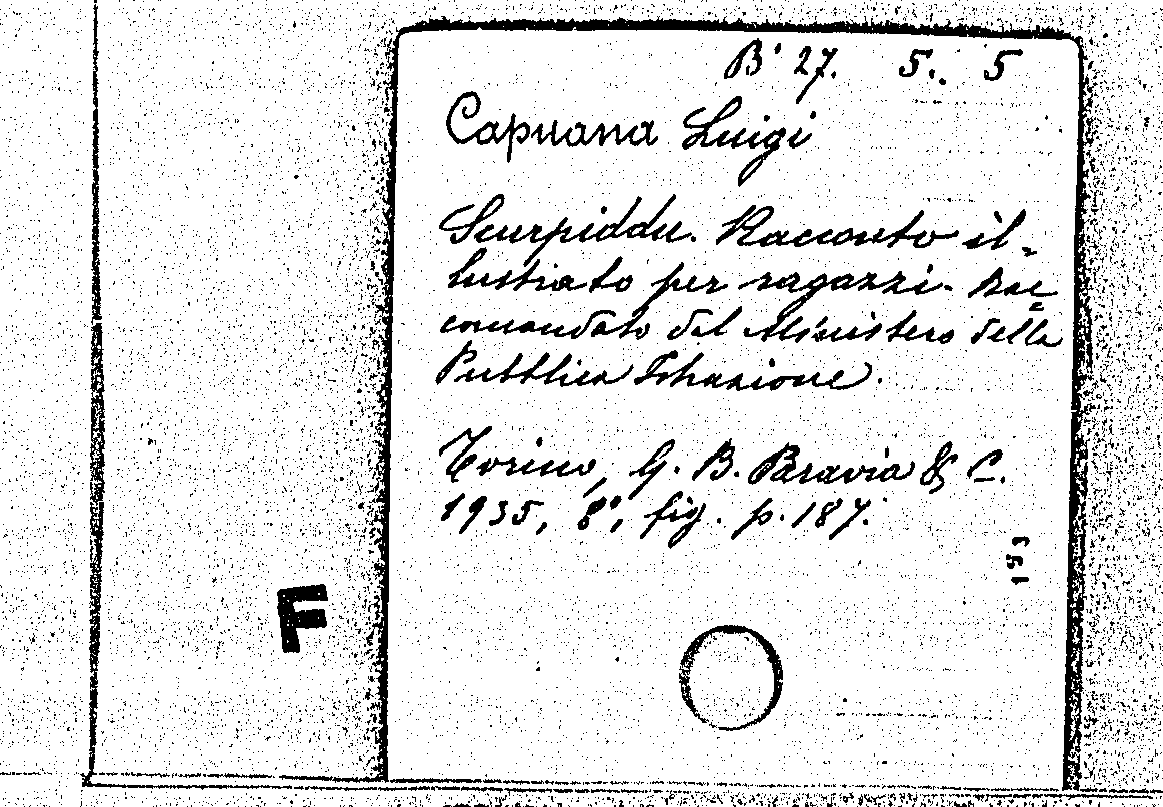 B' 27. 5. 5
Capuana Luigi
Scurpiddu. Racconto il-
lustrato per ragazzi. Rac=
comandato dal Ministero della
Pubblica Istruzione.
Torino, G. B. Paravia & C.
1935, 8°, fig. p. 187.
F